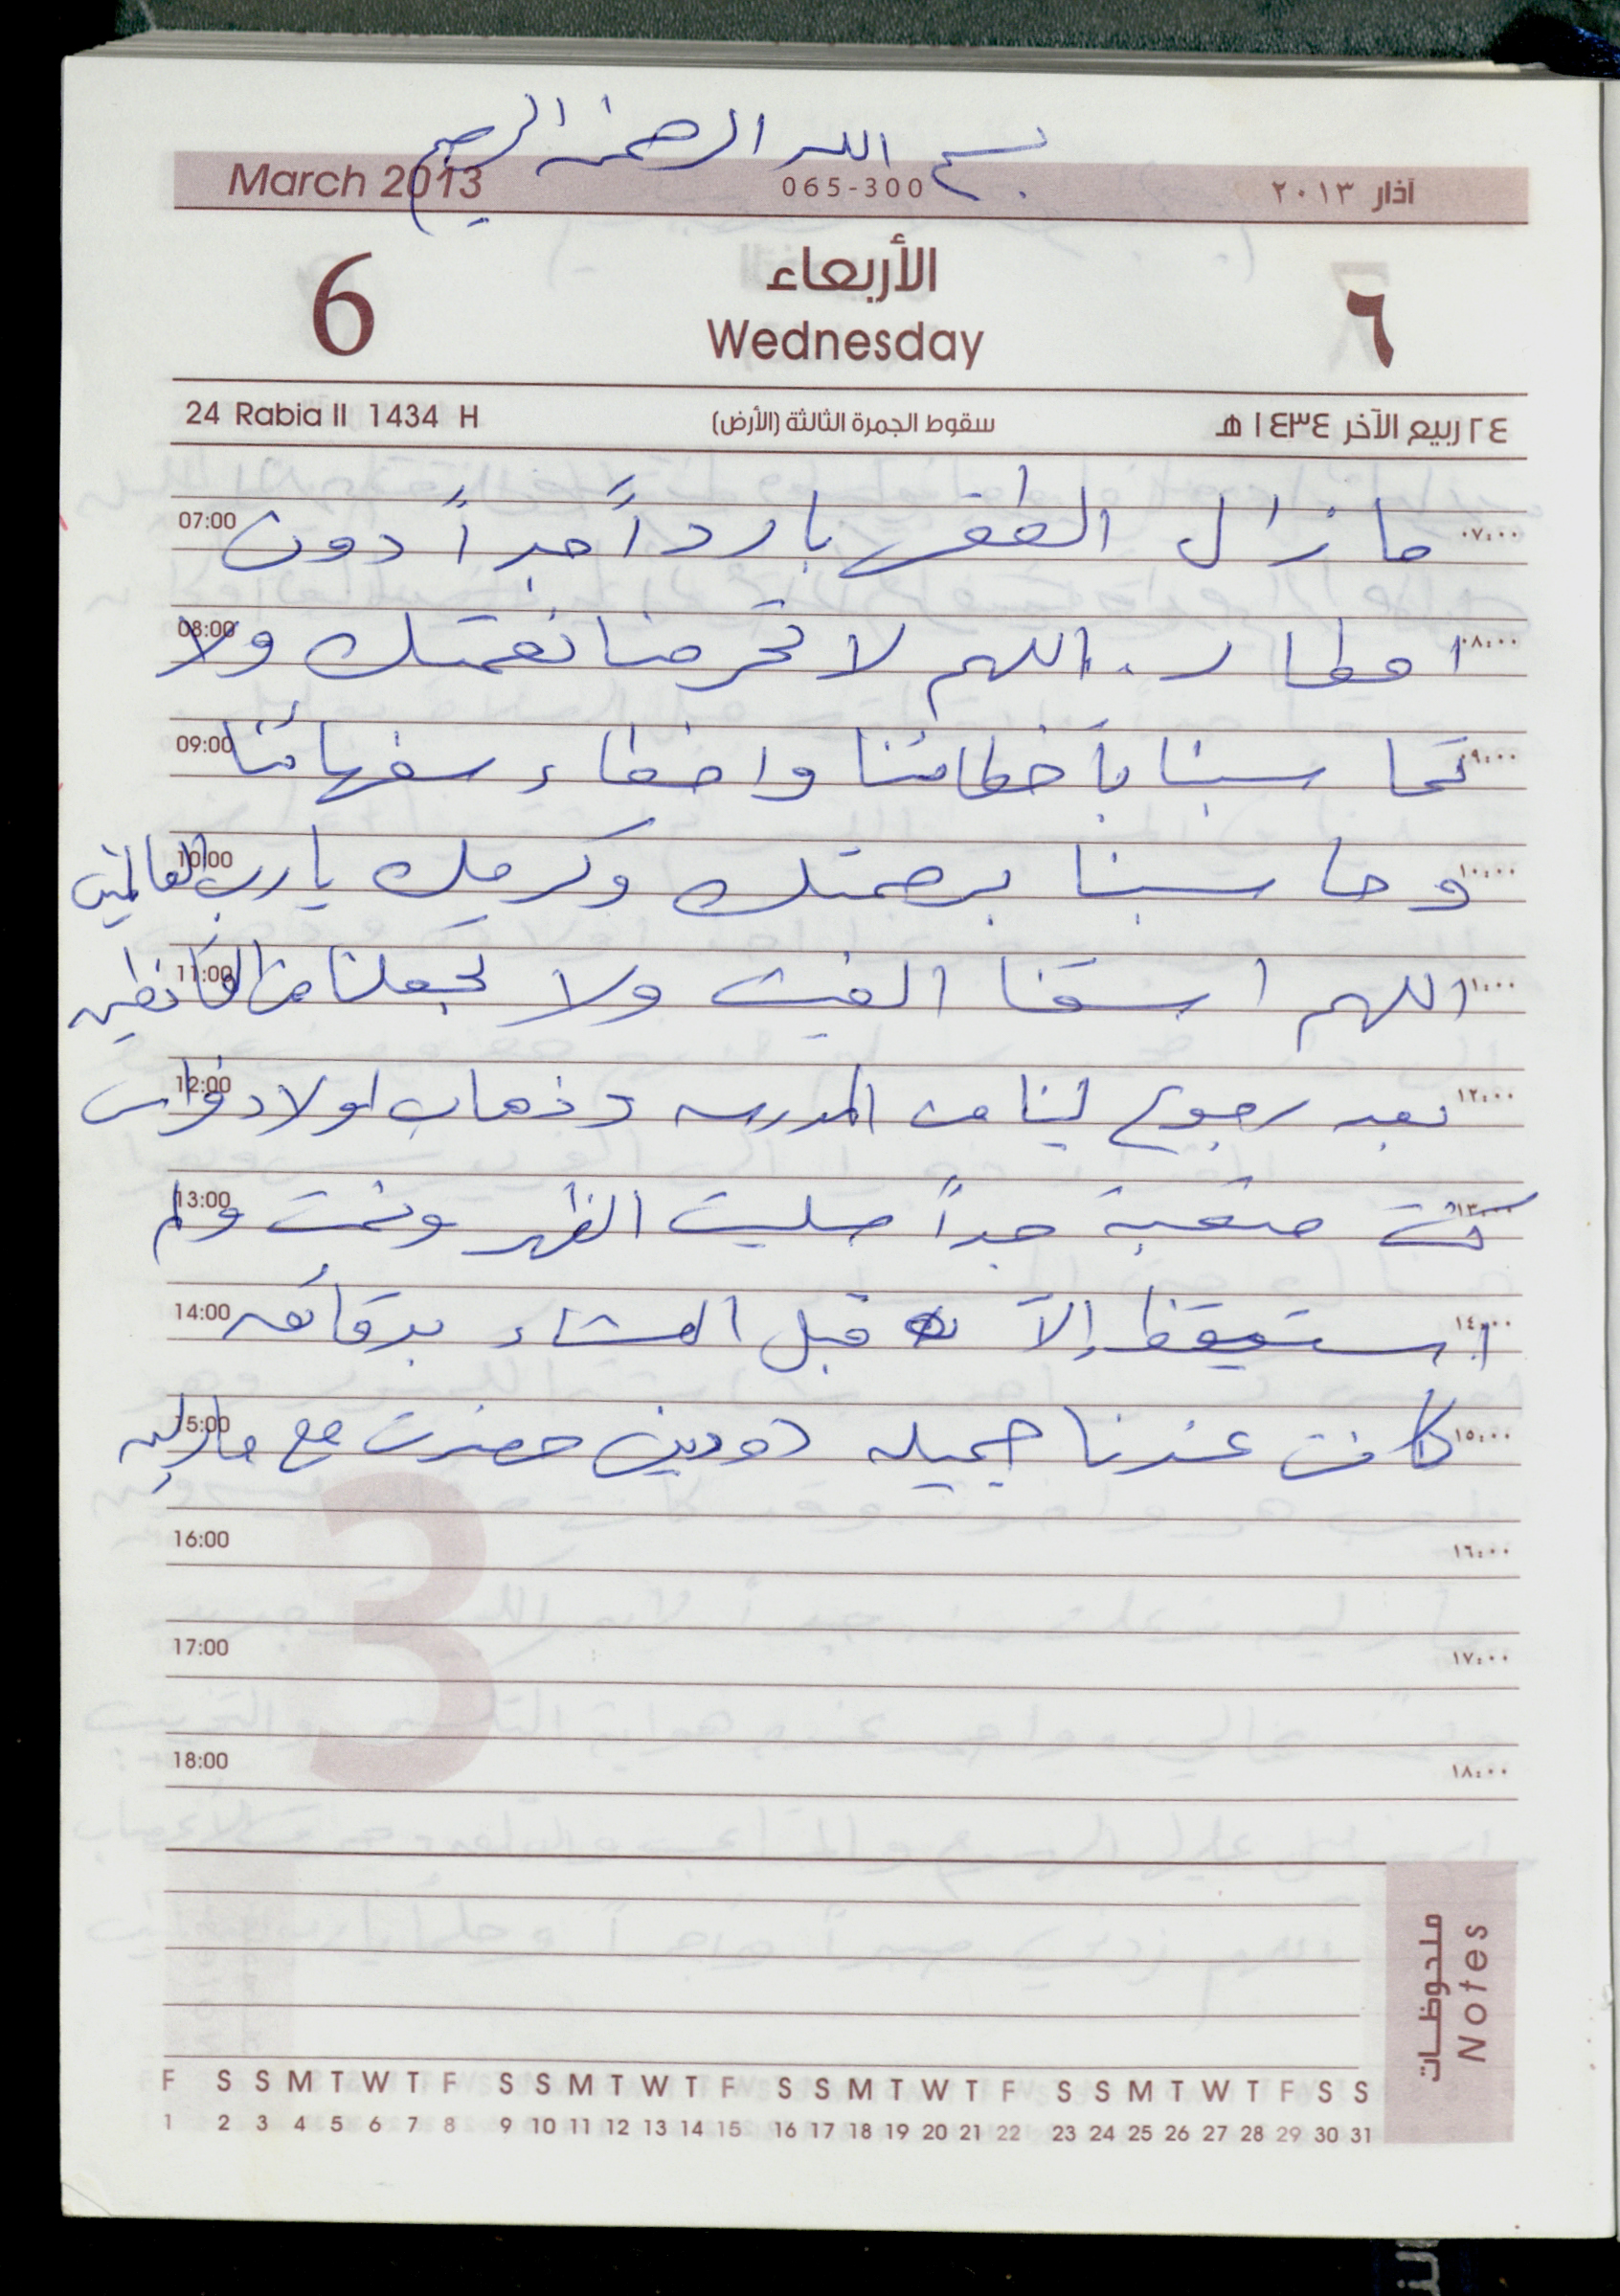 بسم الله الرحمن الرحيم
March 2013 065-300 آذار ٢٠١٣
6 الأربعاء ٦
Wednesday
24 Rabia II 1434 H سقوط الجمرة الثالثة (الأرض) ٢٤ ربيع الآخر ١٤٣٤ هـ
07:00 ما زال الطقس بارداً جداً دون ٠٧:٠٠
08:00 امطار.. اللهم لا تحرمنا نعمتك ولا ٠٨:٠٠
09:00 تحاسبنا بأخطائنا واخطاء سفهائنا ٠٩:٠٠
10:00 وحاسبنا برحمتك وكرمك يا رب العالمين ١٠:٠٠
11:00 اللهم اسقنا الغيث ولا تجعلنا من القانطين ١١:٠٠
12:00 بعد رجوع لينا من المدرسه وذهاب اولاد فراس ١٢:٠٠
13:00 كنت متعبة جداً صليت الظهر ونمت ولم ١٣:٠٠
14:00 استيقظ إلآ قبل العشاء بدقائق ١٤:٠٠
15:00 كانت عندنا جميله دودين حضرت مع مارلين ١٥:٠٠
16:00 ١٦:٠٠
17:00 ١٧:٠٠
18:00 ١٨:٠٠
3
ملحوظات
Notes
F S S M T W T F S S M T W T F S S M T W T F S S M T W T F S S
1 2 3 4 5 6 7 8 9 10 11 12 13 14 15 16 17 18 19 20 21 22 23 24 25 26 27 28 29 30 31